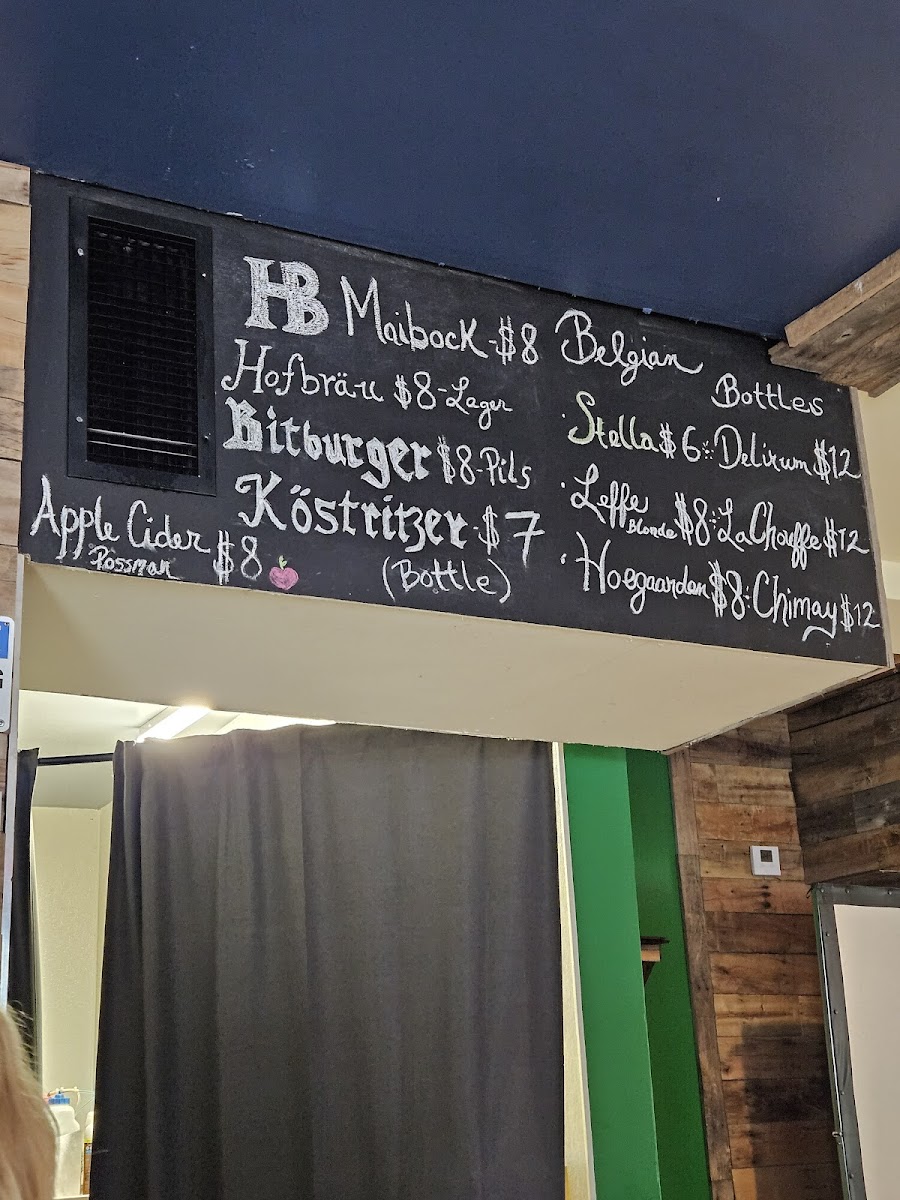 HB Maibock - $8
Hofbräu $8 - Lager
Bitburger $8 - Pils
Köstritzer - $7
(Bottle)
Apple Cider $8
Rossman
Belgian
Bottles
· Stella $6 : Delirum $12
· Leffe Blonde $8 : La Chouffe $12
· Hoegaarden $8 : Chimay $12
G